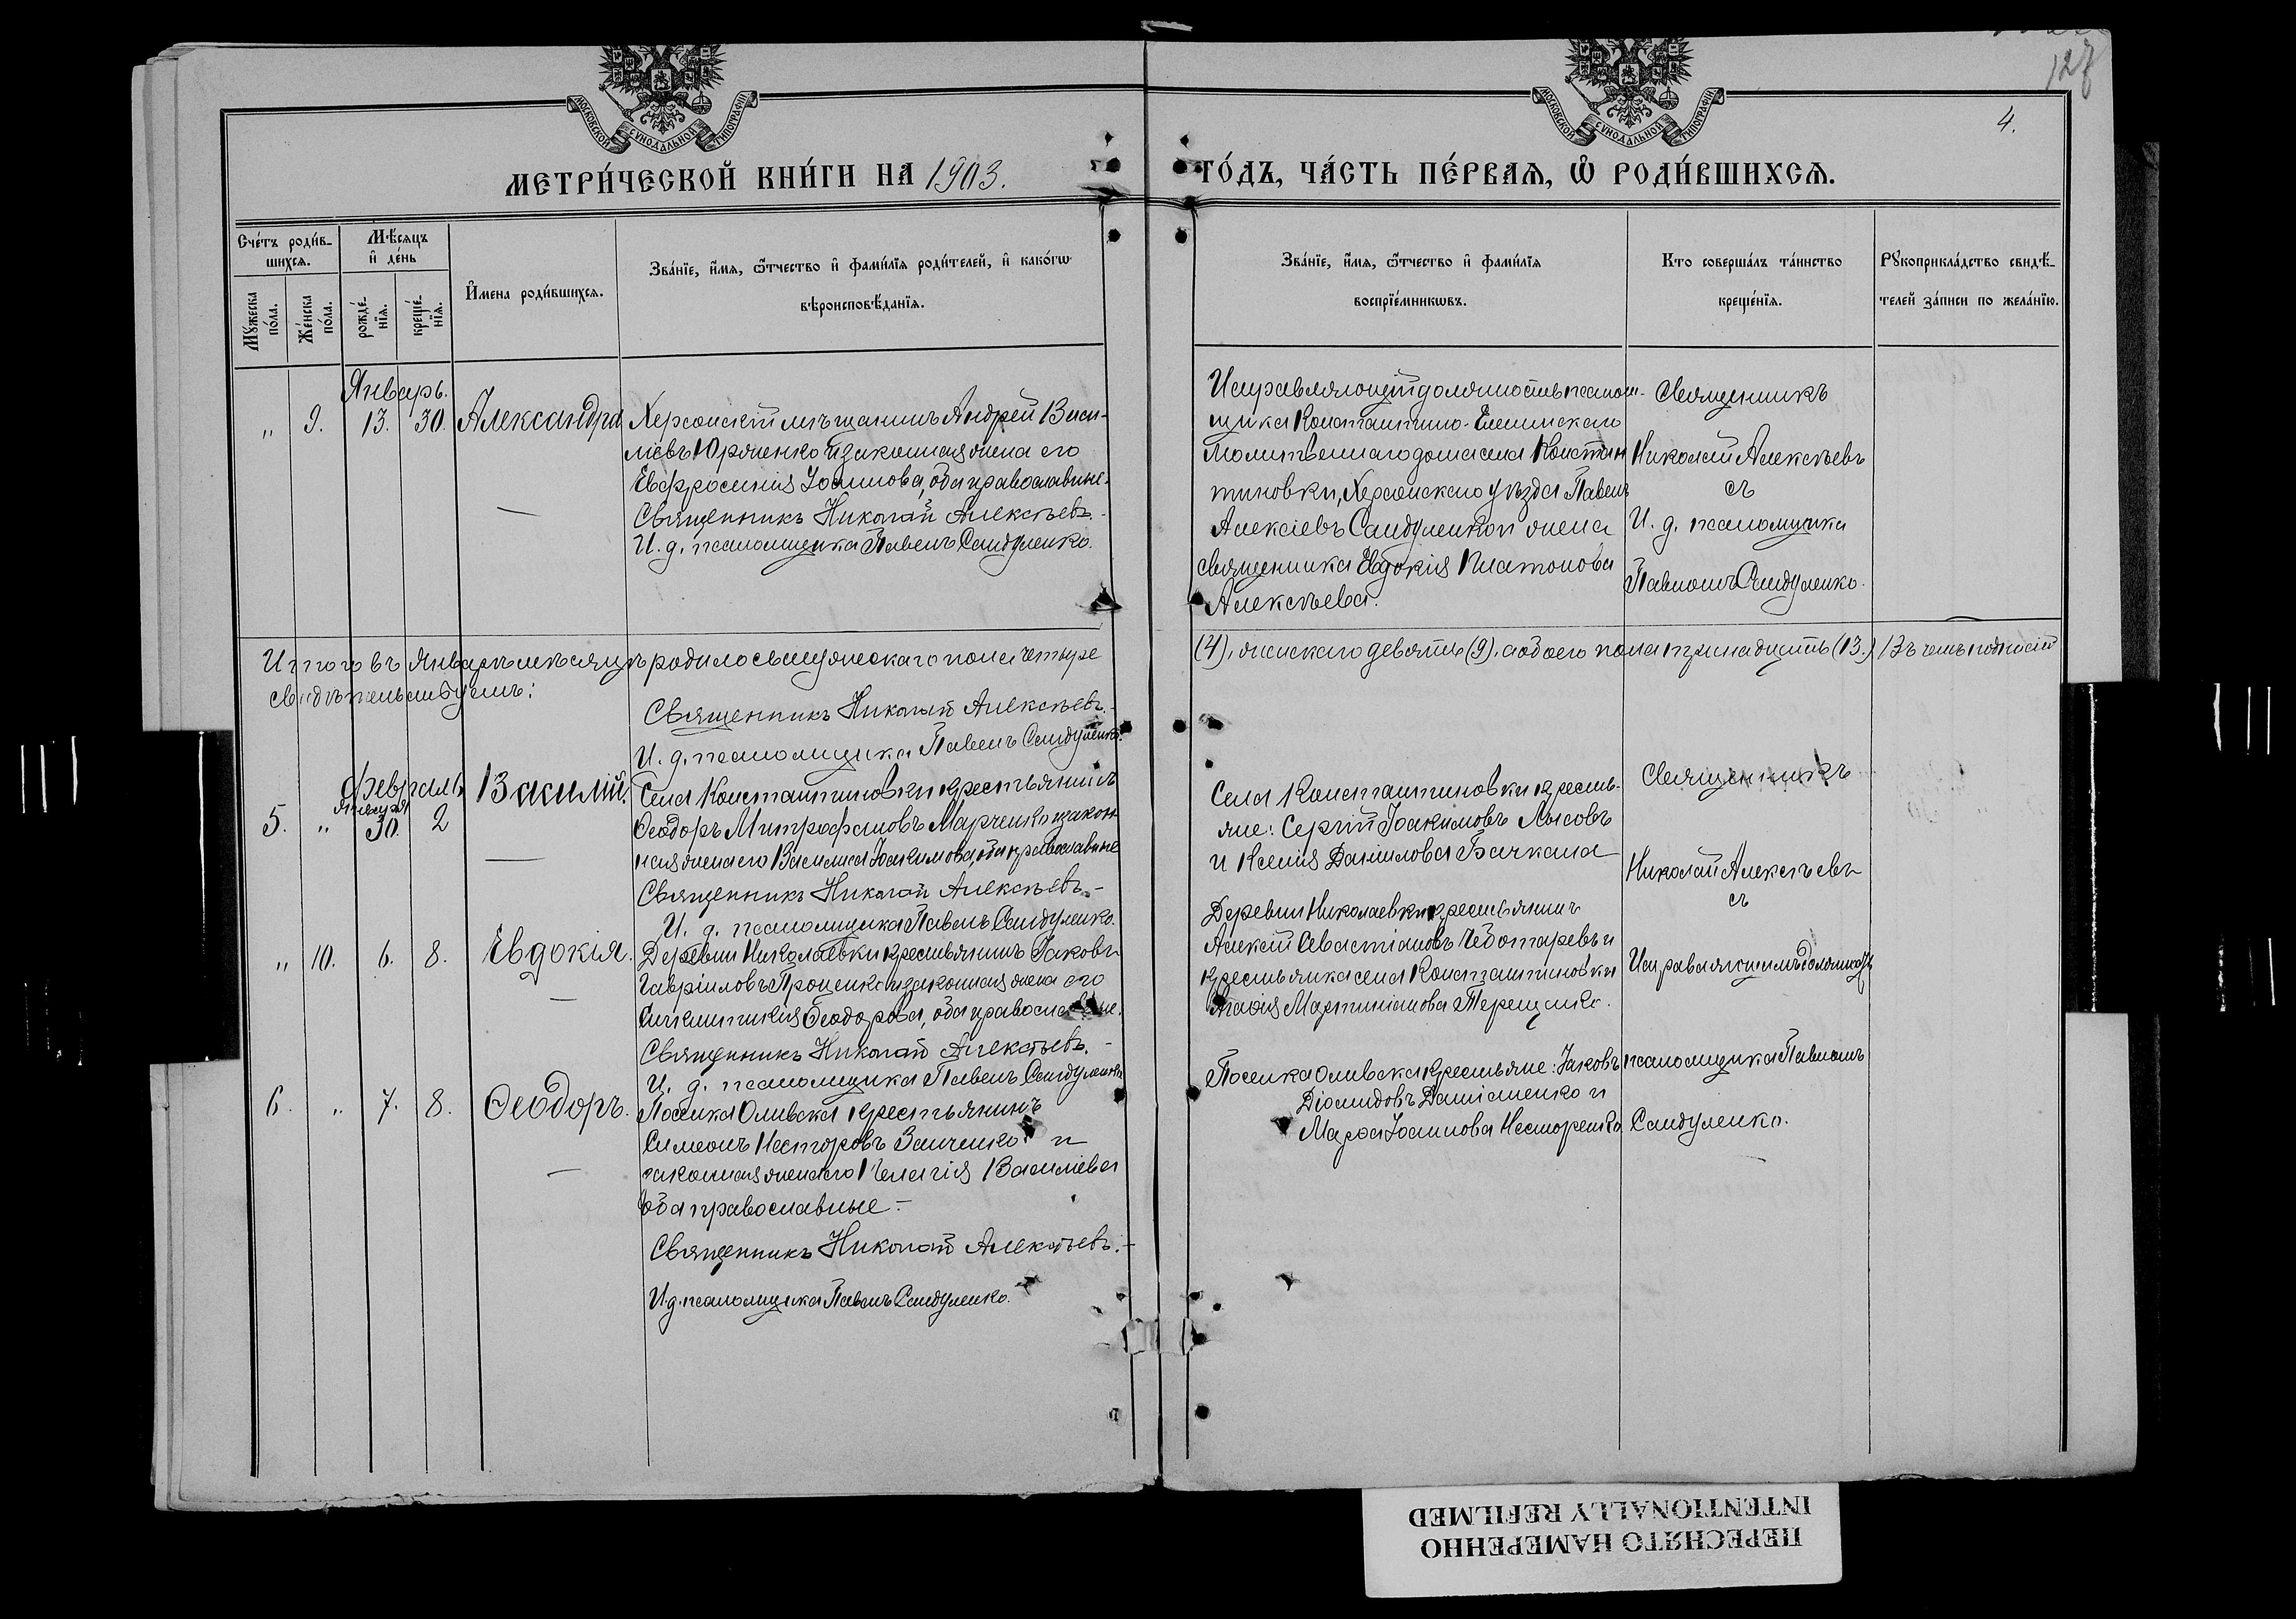 127
4.
МОСКОВСКОЙ СѴНОДАЛЬНОЙ ТИПОГРАФІИ
МОСКОВСКОЙ СѴНОДАЛЬНОЙ ТИПОГРАФІИ
МЕТРИ́ЧЕСКОЙ КНИ́ГИ НА 1903.
ГО́ДЪ, ЧА́СТЬ ПЕ́РВАѦ, Ѽ РОДИ́ВШИХСѦ.
Сче́тъ роди́в-
шихсѧ.
Мꙋ́жеска по́ла.
Же́нска по́ла.
Мѣ́сяцъ
и҆ де́нь
рожде́-
нїѧ.
креще́-
нїѧ.
И҆мена роди́вшихсѧ.
Зва́нїе, и҆́мѧ, ѻ҆́тчество и҆ фами́лїѧ роди́телей, и҆ како́гѡ
вѣроисповѣ́данїѧ.
Зва́нїе, и҆́мѧ, ѻ҆́тчество и҆ фами́лїѧ
воспрїе́мникѡвъ.
Кто совершáлъ та́инство
креще́нїѧ.
Рꙋкоприкла́дство свидѣ́-
телей за́писи по жела́нїю.
Январь.
„ 9. 13. 30. Александра
Херсонскій мѣщанинъ Андрей Васи-
ліевъ Юрченко и законная жена его
Евфросинія Іоаннова, оба православные.
Священникъ Николай Алексѣевъ.
И. д. псаломщика Павелъ Сандуленко.
Исправляющій должность псалом-
щика Константино-Еленинскаго
молитвеннаго дома села Констан
тиновки, Херсонскаго уѣзда Павелъ
Алексіевъ Сандуленко и жена
священника Евдокія Платонова
Алексѣева.
Священникъ
Николай Алексѣевъ
съ
И. д. псаломщика
Павломъ Сандуленко.
Итого въ Январѣ мѣсяцѣ родилось мужескаго пола четыре
(4), женскаго девять (9), а обоего пола тринадцать (13.) Въ чемъ подписью
свидѣтельствуемъ:
Священникъ Николай Алексѣевъ.
И. д. псаломщика Павелъ Сандуленко.
Февраль
Января
5. „ 30. 2 Василій.
Села Константиновки крестьянинъ
Ѳеодоръ Митрофановъ Марченко и закон
ная жена его Василиса Іоакимова, оба православные
Священникъ Николай Алексѣевъ.
И. д. псаломщика Павелъ Сандуленко.
Села Константиновки кресть-
яне: Сергій Іоакимовъ Лысовъ
и Ксенія Даніилова Бачкала
Священникъ
Николай Алексѣевъ
съ
„ 10. 6. 8. Евдокія.
Деревни Николаевки крестьянинъ Іаковъ
Гавріиловъ Проценко и законная жена его
Синклитикія Ѳеодорова, оба православные.
Священникъ Николай Алексѣевъ.
И. д. псаломщика Павелъ Сандуленко
Деревни Николаевки крестьянинъ
Алексій Севастіановъ Чеботаревъ и
крестьянка села Константиновки
Агаѳія Мартиніанова Терещенко.
Исправляющимъ должность
псаломщика Павломъ
Сандуленко.
6. „ 7. 8. Ѳеодоръ.
Поселка Оливска крестьянинъ
Симеонъ Несторовъ Заиченко и
законная жена его Пелагія Василіева
оба православные.
Священникъ Николай Алексѣевъ.
И.д. псаломщика Павелъ Сандуленко.
Поселка Оливска крестьяне: Іаковъ
Діомидовъ Даниленко и
Марѳа Іоаннова Несторенко.
ПЕРЕСНЯТО НАМЕРЕННО
INTENTIONALLY REFILMED